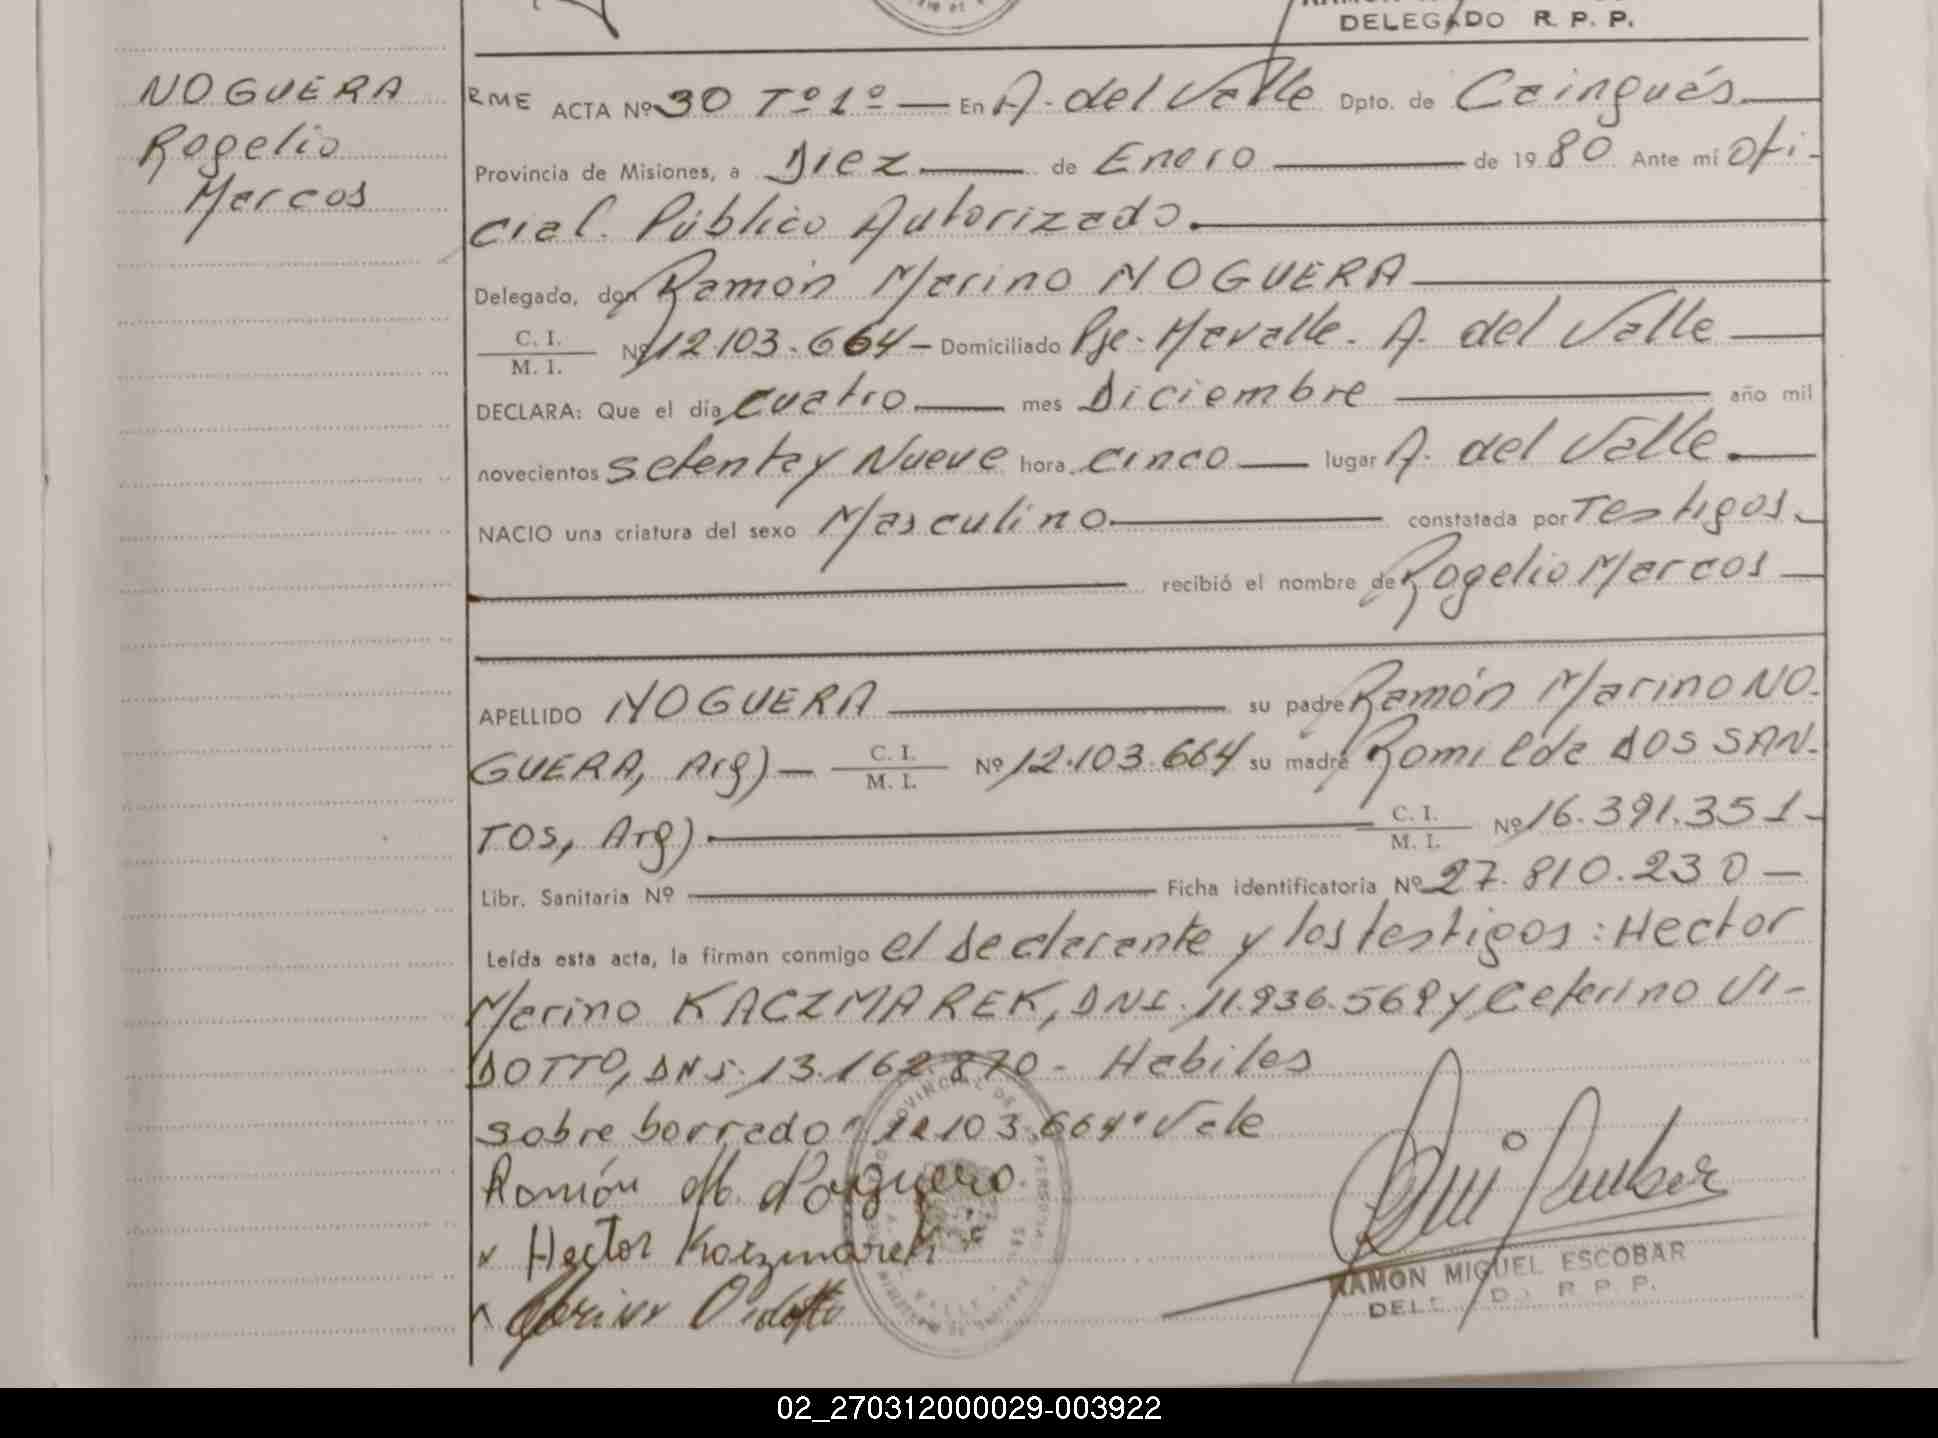 DELEGADO R. P. P.
NOGUERA
Rogelio
Marcos
RME ACTA Nº 30 Tº 1º — En A. del Valle Dpto. de Cainguás
Provincia de Misiones, a Diez de Enero de 1980 Ante mí Ofi-
cial. Público Autorizado.
Delegado, don Ramón Marino NOGUERA
C. I.
M. I. Nº 12.103.664 — Domiciliado Pje. Mavalle. A. del Valle
DECLARA: Que el día cuatro mes Diciembre año mil
novecientos setenta y Nueve hora cinco lugar A. del Valle.
NACIO una criatura del sexo Masculino constatada por Testigos.
recibió el nombre de Rogelio Marcos
APELLIDO NOGUERA su padre Ramón Marino NO-
GUERA, Arg) — C. I. M. I. Nº 12.103.664 su madre Romilda DOS SAN-
TOS, Arg) C. I. M. I. Nº 16.391.351-
Libr. Sanitaria Nº Ficha identificatoria Nº 27.810.230 —
Leída esta acta, la firman conmigo el declarante y los testigos: Hector
Marino KACZMAREK, DNI. 11.936.569 y Ceferino VI-
DOTTO, DNI. 13.162.870 - Habiles
sobre borrado "12.103.664" Vale
Ramón M. Noguera
x Hector Kaczmarek
RAMON MIGUEL ESCOBAR
R. P. P.
02_270312000029-003922